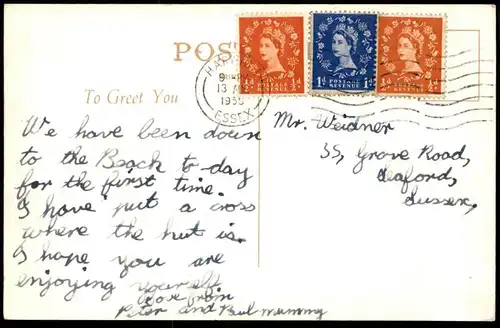 POST
To Greet You
9
13
ESSEX
½d POSTAGE REVENUE ½d
1d POSTAGE REVENUE 1d
½d POSTAGE REVENUE ½d
We have been down
to the Beach to-day
for the first time.
I have put a cross
where the hut is.
I hope you are
enjoying yourself
love from
Peter and Paul mummy
Mr. Weidner
35, Grove Road,
Seaford,
Sussex,